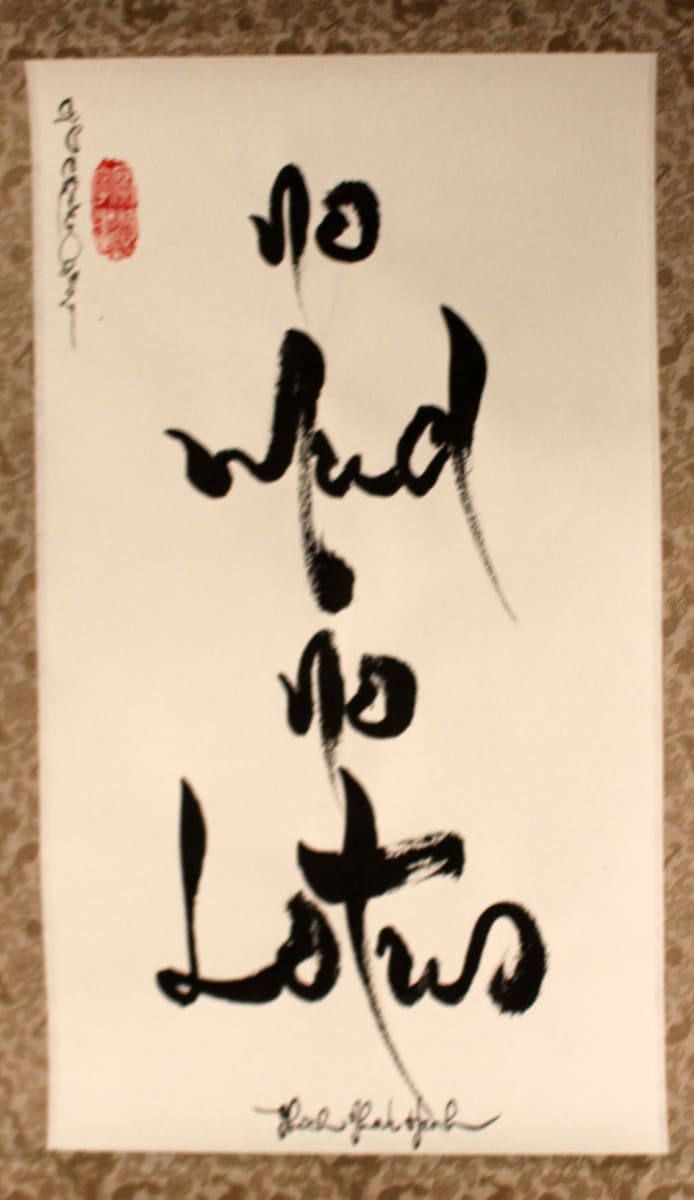 no
Mud
no
Lotus
Thich Nhat Hanh